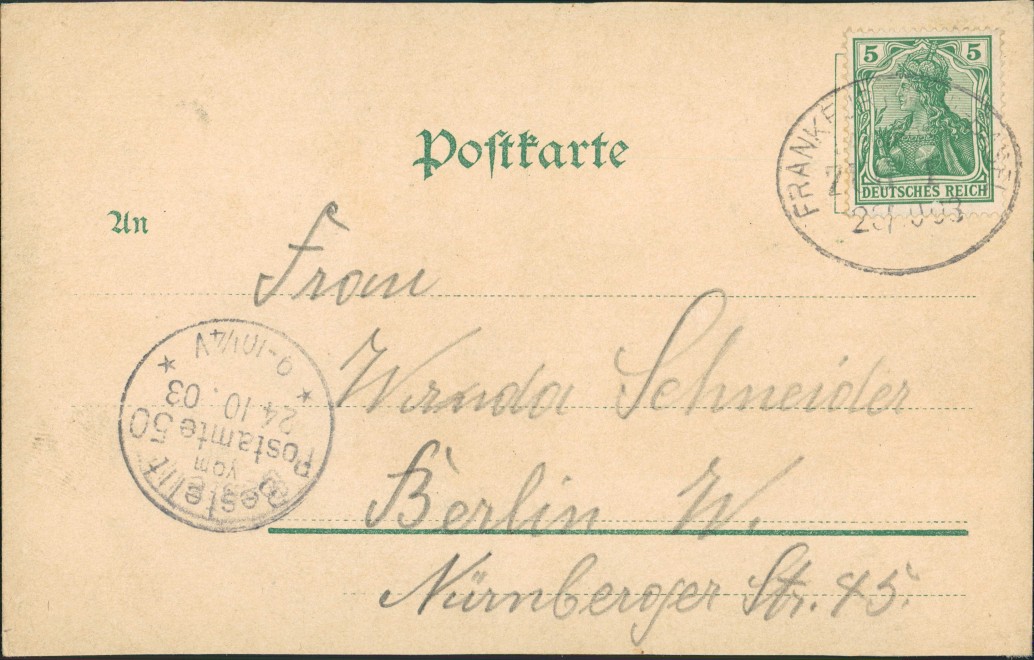 5 5
DEUTSCHES REICH
FRANKE
23 . 0 03
Postkarte
An
Frau
Wanda Schneider
Berlin W.
Nürnberger Str. 45.
Bestellt
vom
Postamte 50
24.10.03
9-10¼V